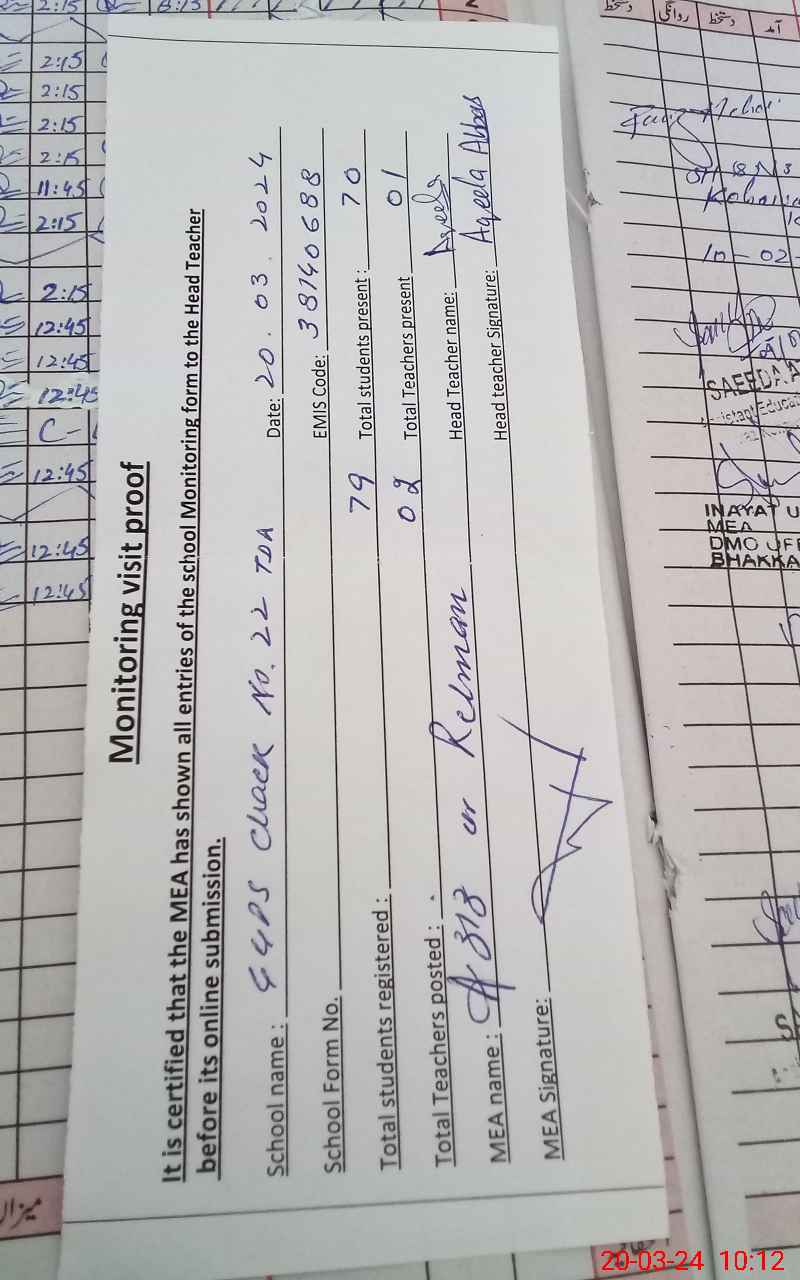 Monitoring visit proof
It is certified that the MEA has shown all entries of the school Monitoring form to the Head Teacher
before its online submission.
School name : GGPS Chack No. 22 TDA Date: 20.03.2024
School Form No. EMIS Code: 38140688
Total students registered : 79 Total students present : 70
Total Teachers posted : 02 Total Teachers present 01
MEA name : Rehman Head Teacher name: Aqeela
MEA Signature: Head teacher Signature: Aqeela Abbas
2:15
2:15
2:15
2:15
2:15
11:45
2:15
2:15
12:45
12:45
12:45
C-
12:45
12:45
12:45
میزان
دستخط
روانگی
دستخط
آمد
10-02-
SAEEDA A
INAYAT U
MEA
DMO OFF
BHAKKA
20-03-24 10:12